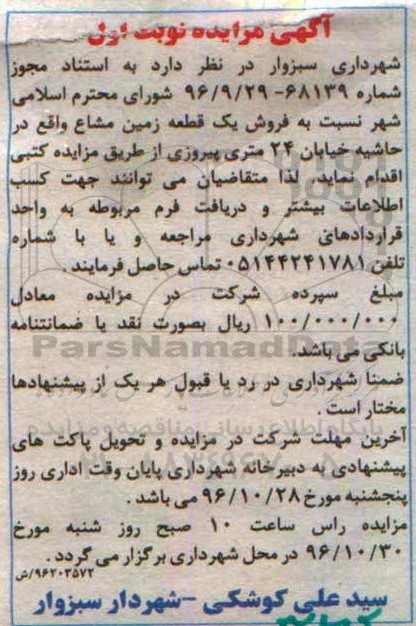 آگهی مزایده نوبت اول
شهرداری سبزوار در نظر دارد به استناد مجوز
شماره ۶۸۱۳۹-۹۶/۹/۲۹ شورای محترم اسلامی
شهر نسبت به فروش یک قطعه زمین مشاع واقع در
حاشیه خیابان ۲۴ متری پیروزی از طریق مزایده کتبی
اقدام نماید. لذا متقاضیان می توانند جهت کسب
اطلاعات بیشتر و دریافت فرم مربوطه به واحد
قراردادهای شهرداری مراجعه و یا با شماره
تلفن ۰۵۱۴۴۲۴۱۷۸۱ تماس حاصل فرمایند.
مبلغ سپرده شرکت در مزایده معادل
۱۰۰/۰۰۰/۰۰۰ ریال بصورت نقد یا ضمانتنامه
ParsNamadData
بانکی می باشد.
ضمنا شهرداری در رد یا قبول هر یک از پیشنهادها
مختار است.
پایگاه اطلاع رسانی مناقصه و مزایده
آخرین مهلت شرکت در مزایده و تحویل پاکت های
پیشنهادی به دبیرخانه شهرداری پایان وقت اداری روز
پنجشنبه مورخ ۹۶/۱۰/۲۸ می باشد.
مزایده راس ساعت ۱۰ صبح روز شنبه مورخ
۹۶/۱۰/۳۰ در محل شهرداری برگزار می گردد.
۹۶۲۰۳۵۷۲/ش
سید علی کوشکی -شهردار سبزوار